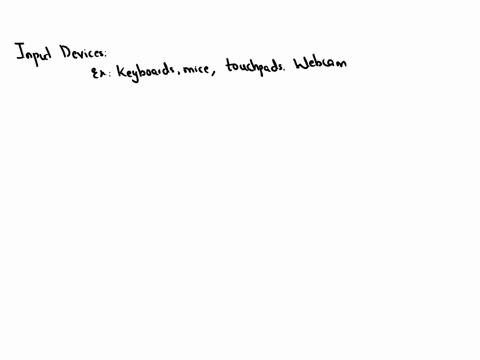 Input Devices:
Ex: Keyboards, mice, touchpads. Webcam